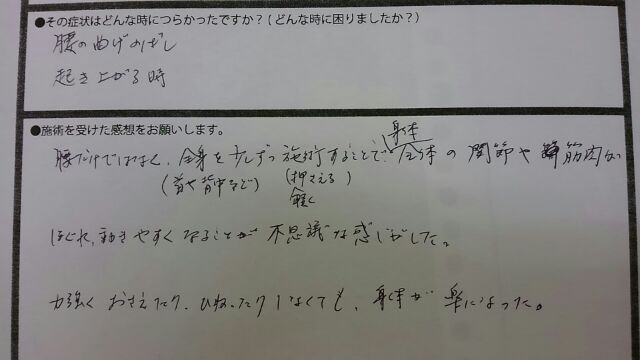 ●その症状はどんな時につらかったですか？（どんな時に困りましたか？）
腰の曲げのばし
起き上がる時
●施術を受けた感想をお願いします。
腰だけではなく、全身を少しずつ施術することで、身体全体の関節や筋肉が
（首や背中など）（軽く押さえる）
ほぐれ、動きやすくなることが不思議な感じがした。
力強くおさえたり、ひねったりしなくても、身体が楽になった。